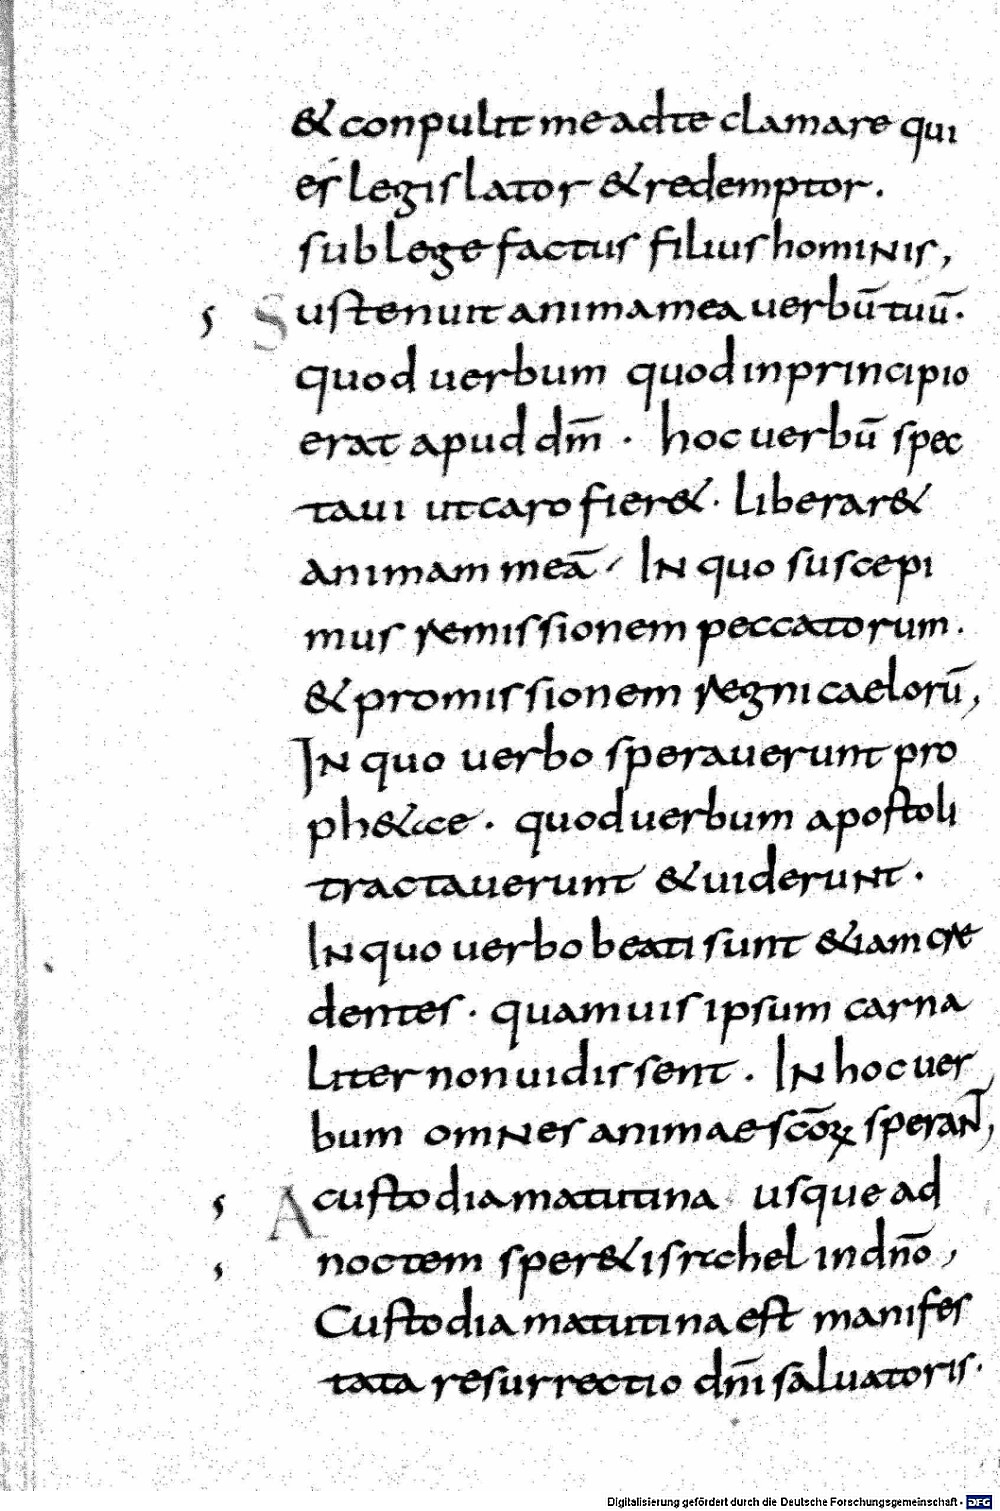 & conpulit me ad te clamare qui
es legislator & redemptor.
sub lege factus filius hominis,
Sustenuit anima mea uerbū tuū.
quod uerbum quod in principio
erat apud dm̄ · hoc uerbū spec
taui ut caro fier&· liberar&
animam meā / In quo suscepi
mus remissionem peccatorum.
& promissionem regni caelorū,
In quo uerbo sperauerunt pro
ph&ae · quod uerbum apostoli
tractauerunt & uiderunt ·
In quo uerbo beati sunt &iam cre
dentes · quamuis ipsum carna
liter non uidissent · In hoc uer
bum omnes animae scōꝝ speran̄,
A custodia matutina · usque ad
noctem sper& israhel in dnō,
Custodia matutina est manifes
tata resurrectio dnī saluatoris·
Digitalisierung gefördert durch die Deutsche Forschungsgemeinschaft · DFG